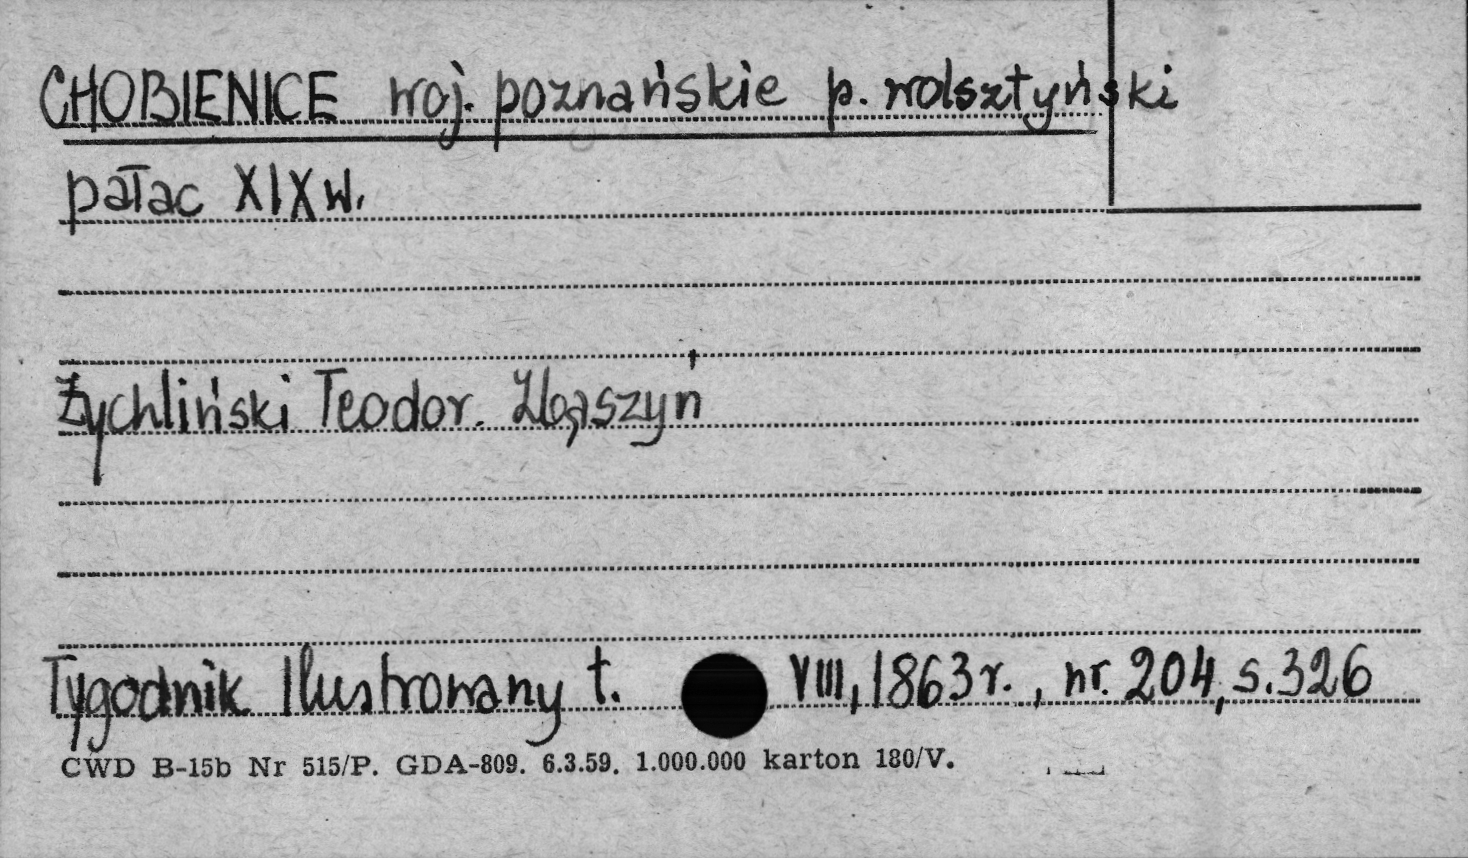 CHOBIENICE woj. poznańskie p. wolsztyński
pałac XIX w.
Żychliński Teodor. Zbąszyń
Tygodnik Ilustrowany t. VIII, 1863 r., nr. 204, s. 326
CWD B-15b Nr 515/P. GDA-809. 6.3.59. 1.000.000 karton 180/V.